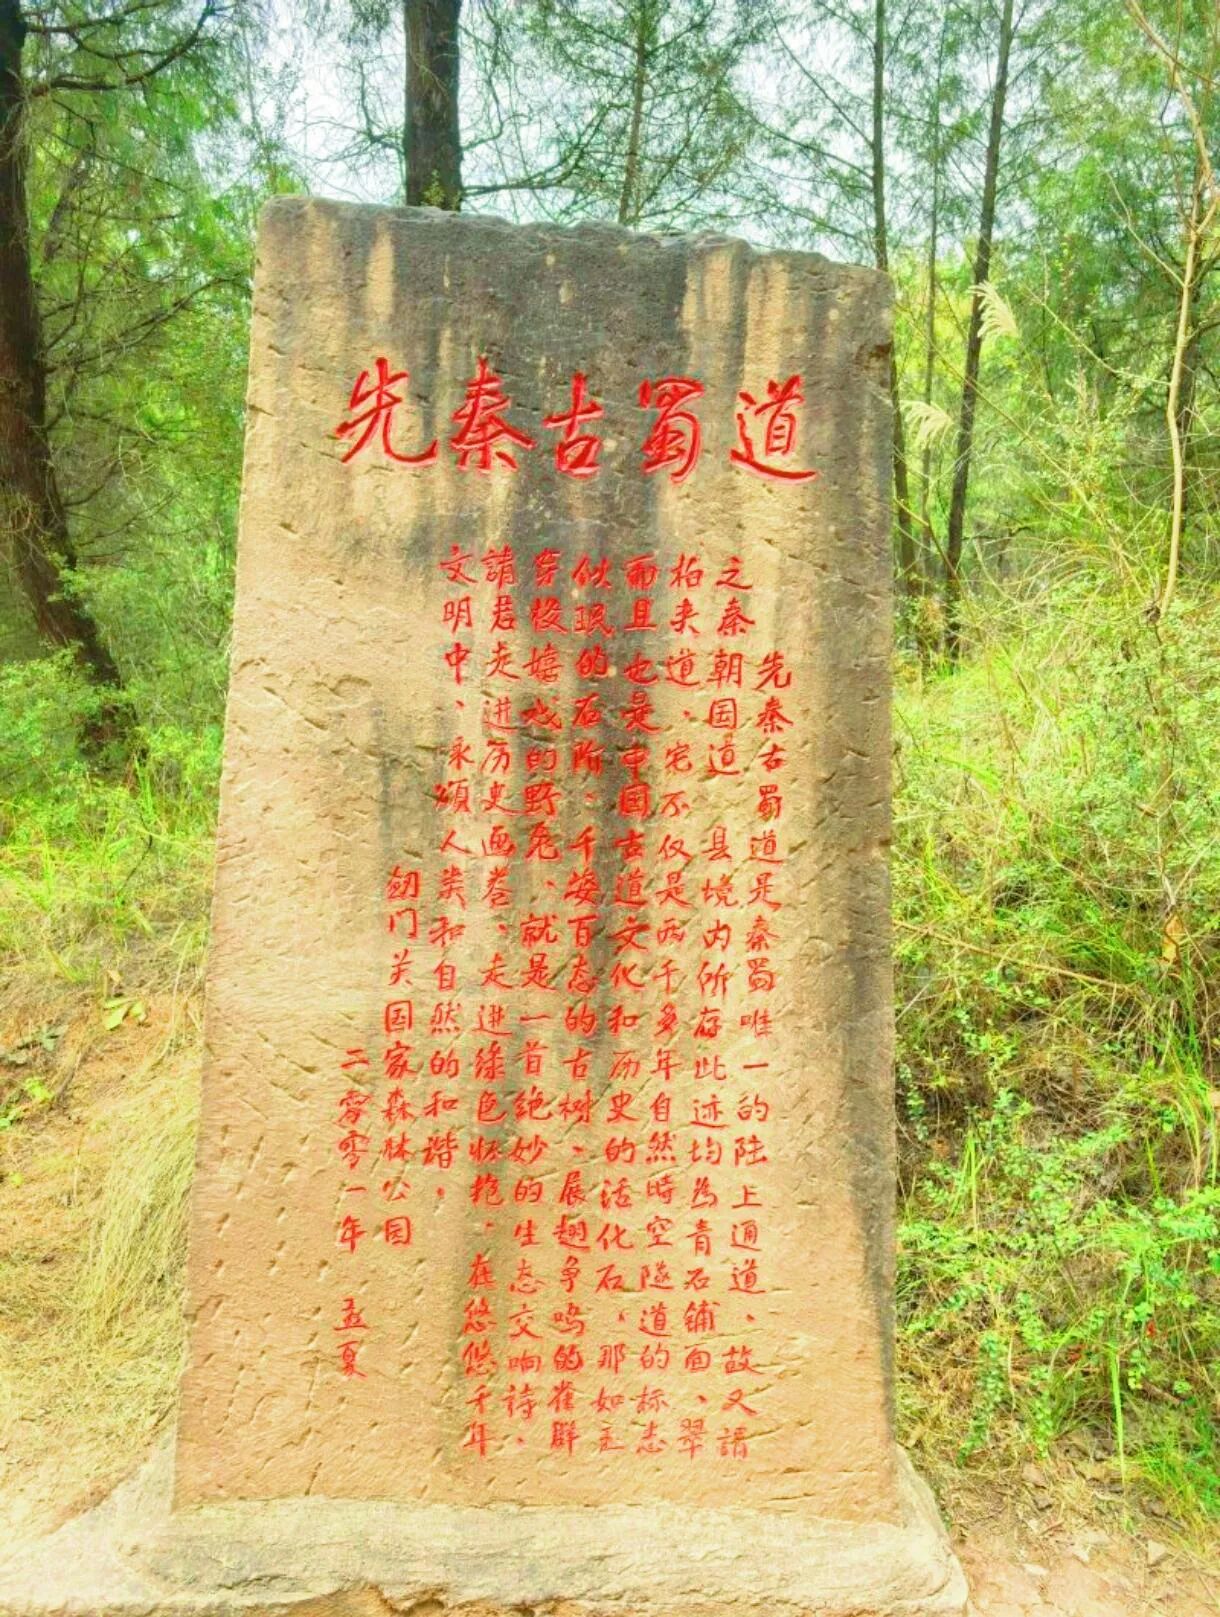 先秦古蜀道
先秦古蜀道是秦蜀唯一的陆上通道、故又謂
之秦朝国道 县境内所存此迹均為青石铺面、翠
柏夹道、它不仅是两千多年自然時空隧道的标志
而且也是中国古道文化和历史的活化石。那如玉
似珉的石阶、千姿百态的古树、展翅争鸣的雀群
穿梭嬉戏的野兔、就是一首绝妙的生态交响詩、
請君走进历史画卷、走进绿色怀抱。在悠悠千年
文明中、永颂人类和自然的和谐。
釼门关国家森林公园
二零零一年 孟夏